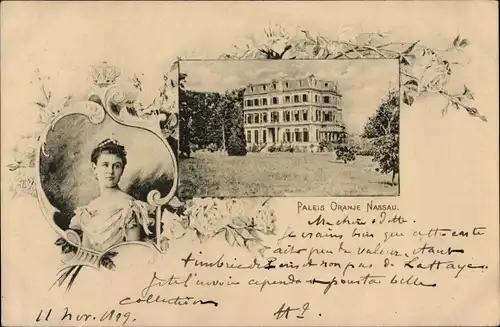 PALEIS ORANJE NASSAU.
Ma chère Odette
je crains bien que cette carte
ait peu de valeur, étant
timbrée de Paris et non pas de La Haye.
Je te l'envoie cependant pour ta belle
collection
11 Nov. 1899.